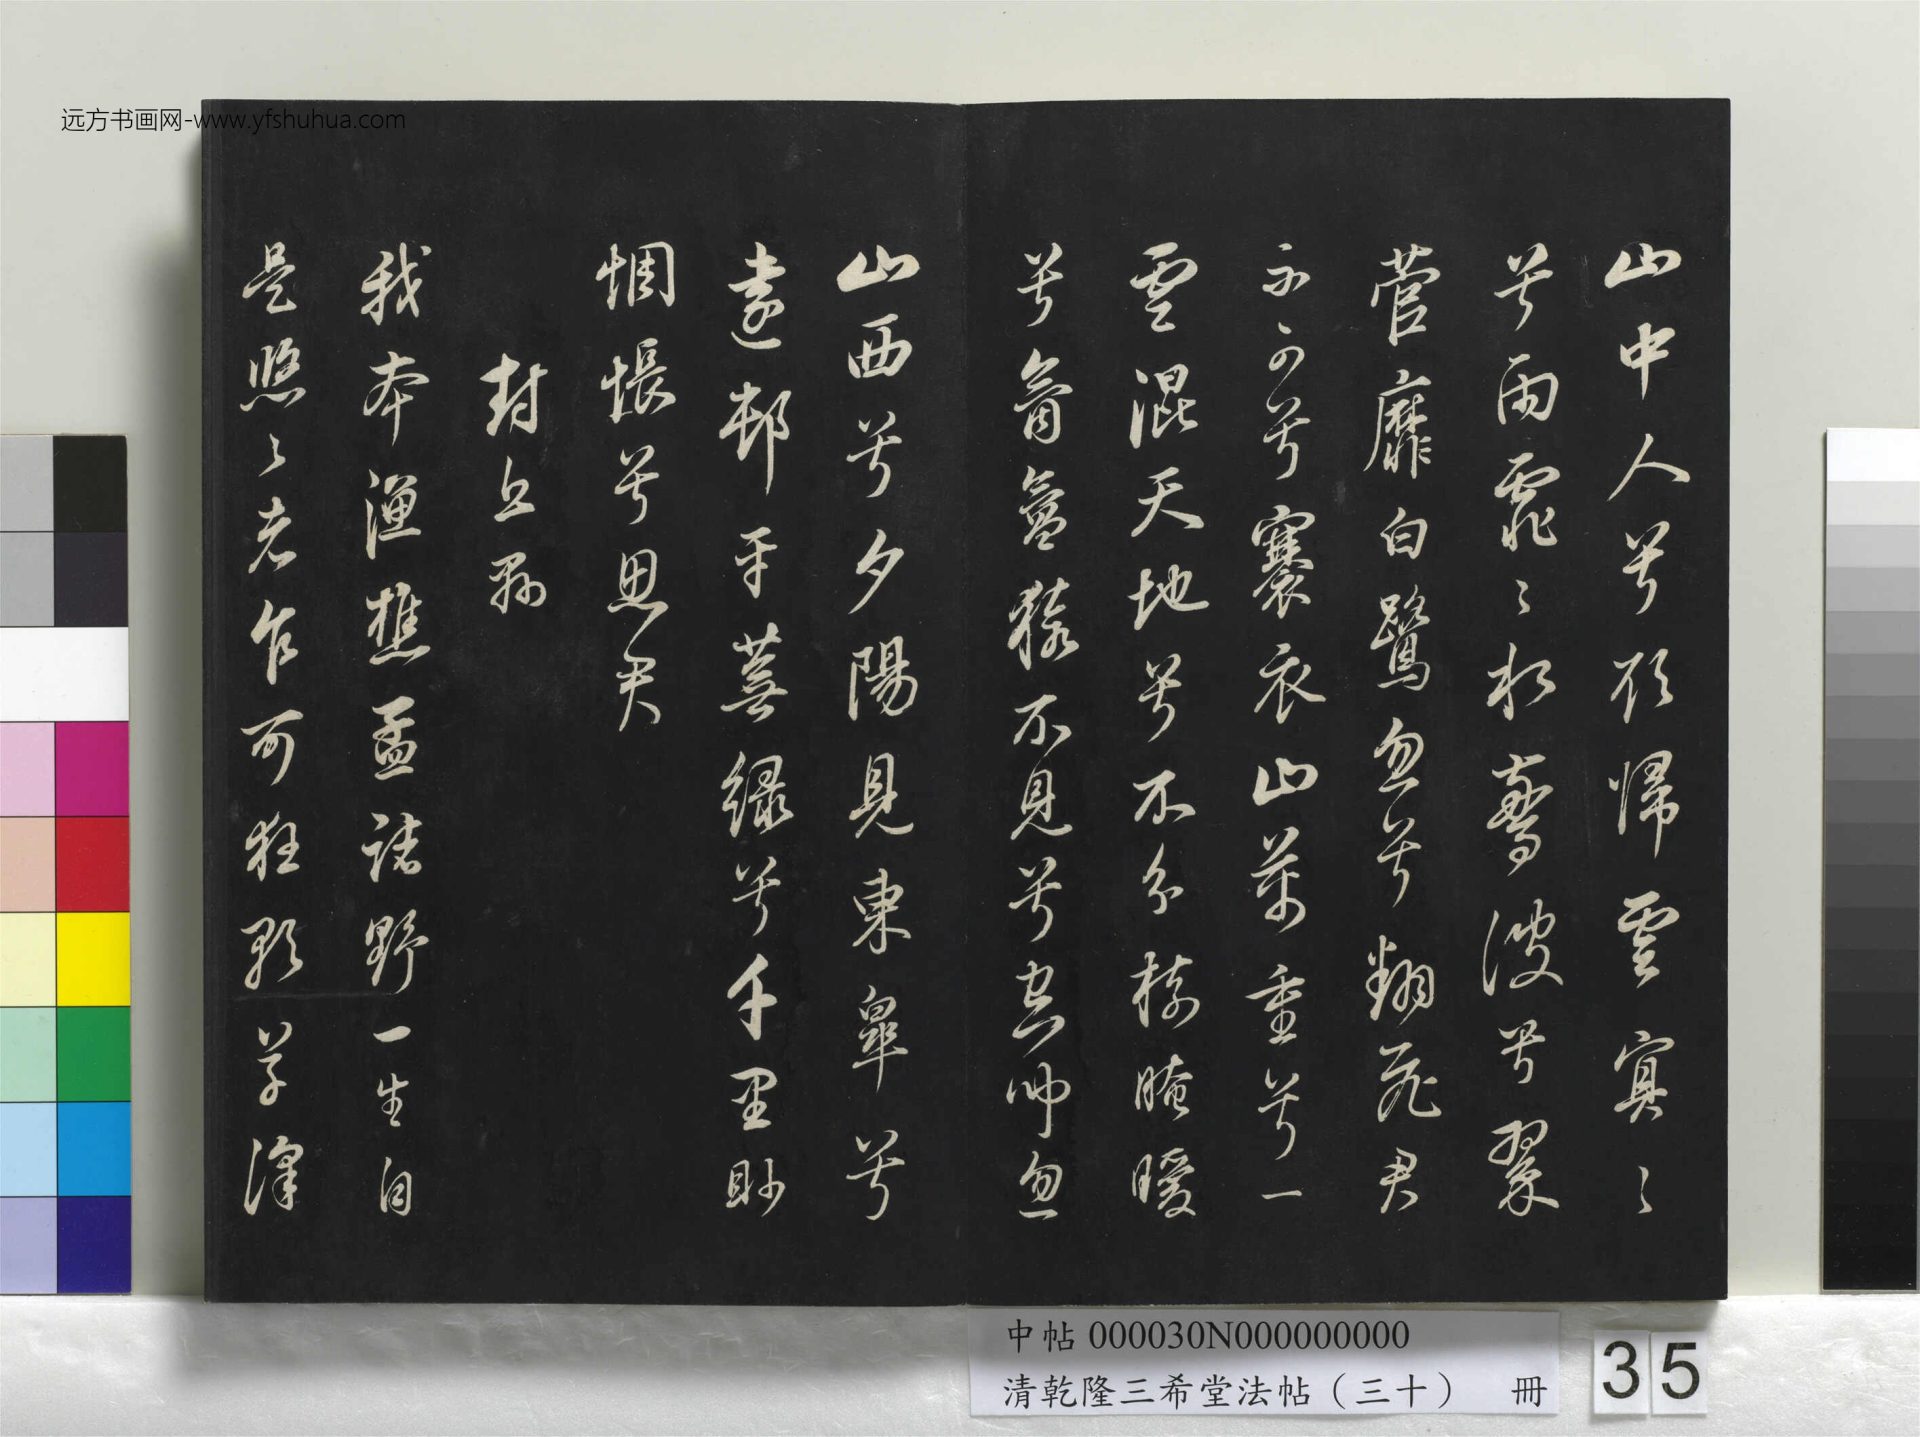 远方书画网-www.yfshuhua.com
山中人兮欲歸雲冥〻
兮雨霏〻水驚波兮翠
菅靡白鷺忽兮翻飛君
不可兮褰衣山萬重兮一
雲混天地兮不分樹晻曖
兮氛氳猿不見兮空聞忽
山西兮夕陽見東皋兮
遠邨平蕪綠兮千里眇
惆悵兮思君
封丘縣
我本漁樵孟諸野一生自
是悠〻者乍可狂歌草澤
中帖 000030N000000000
清乾隆三希堂法帖（三十） 冊
35